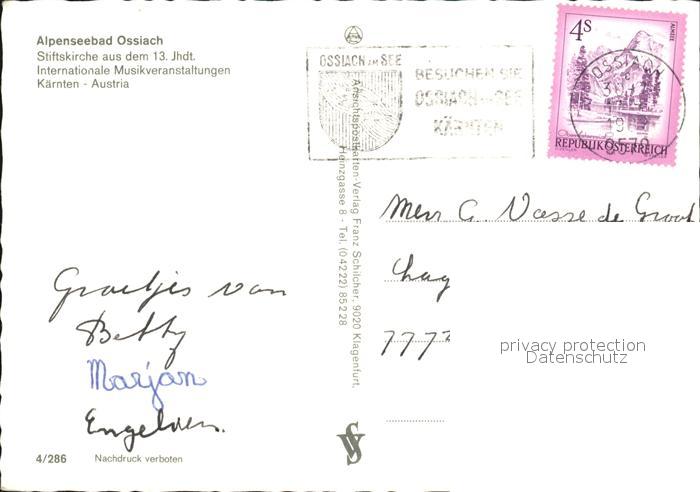 Alpenseebad Ossiach
Stiftskirche aus dem 13. Jhdt.
Internationale Musikveranstaltungen
Kärnten - Austria
OSSIACH AM SEE
BESUCHEN SIE
OSSIACH AM SEE
KÄRNTEN
4S
ALMSEE
REPUBLIK ÖSTERREICH
OSSIACH
9570
Ansichtspostkarten-Verlag Franz Schilcher, 9020 Klagenfurt,
Heinzgasse 8 - Tel. (0 42 22) 8 52 28
G. Vasse de Groot
7777
privacy protection
Datenschutz
Groetjes van
Betty
Marjan
4/286
Nachdruck verboten